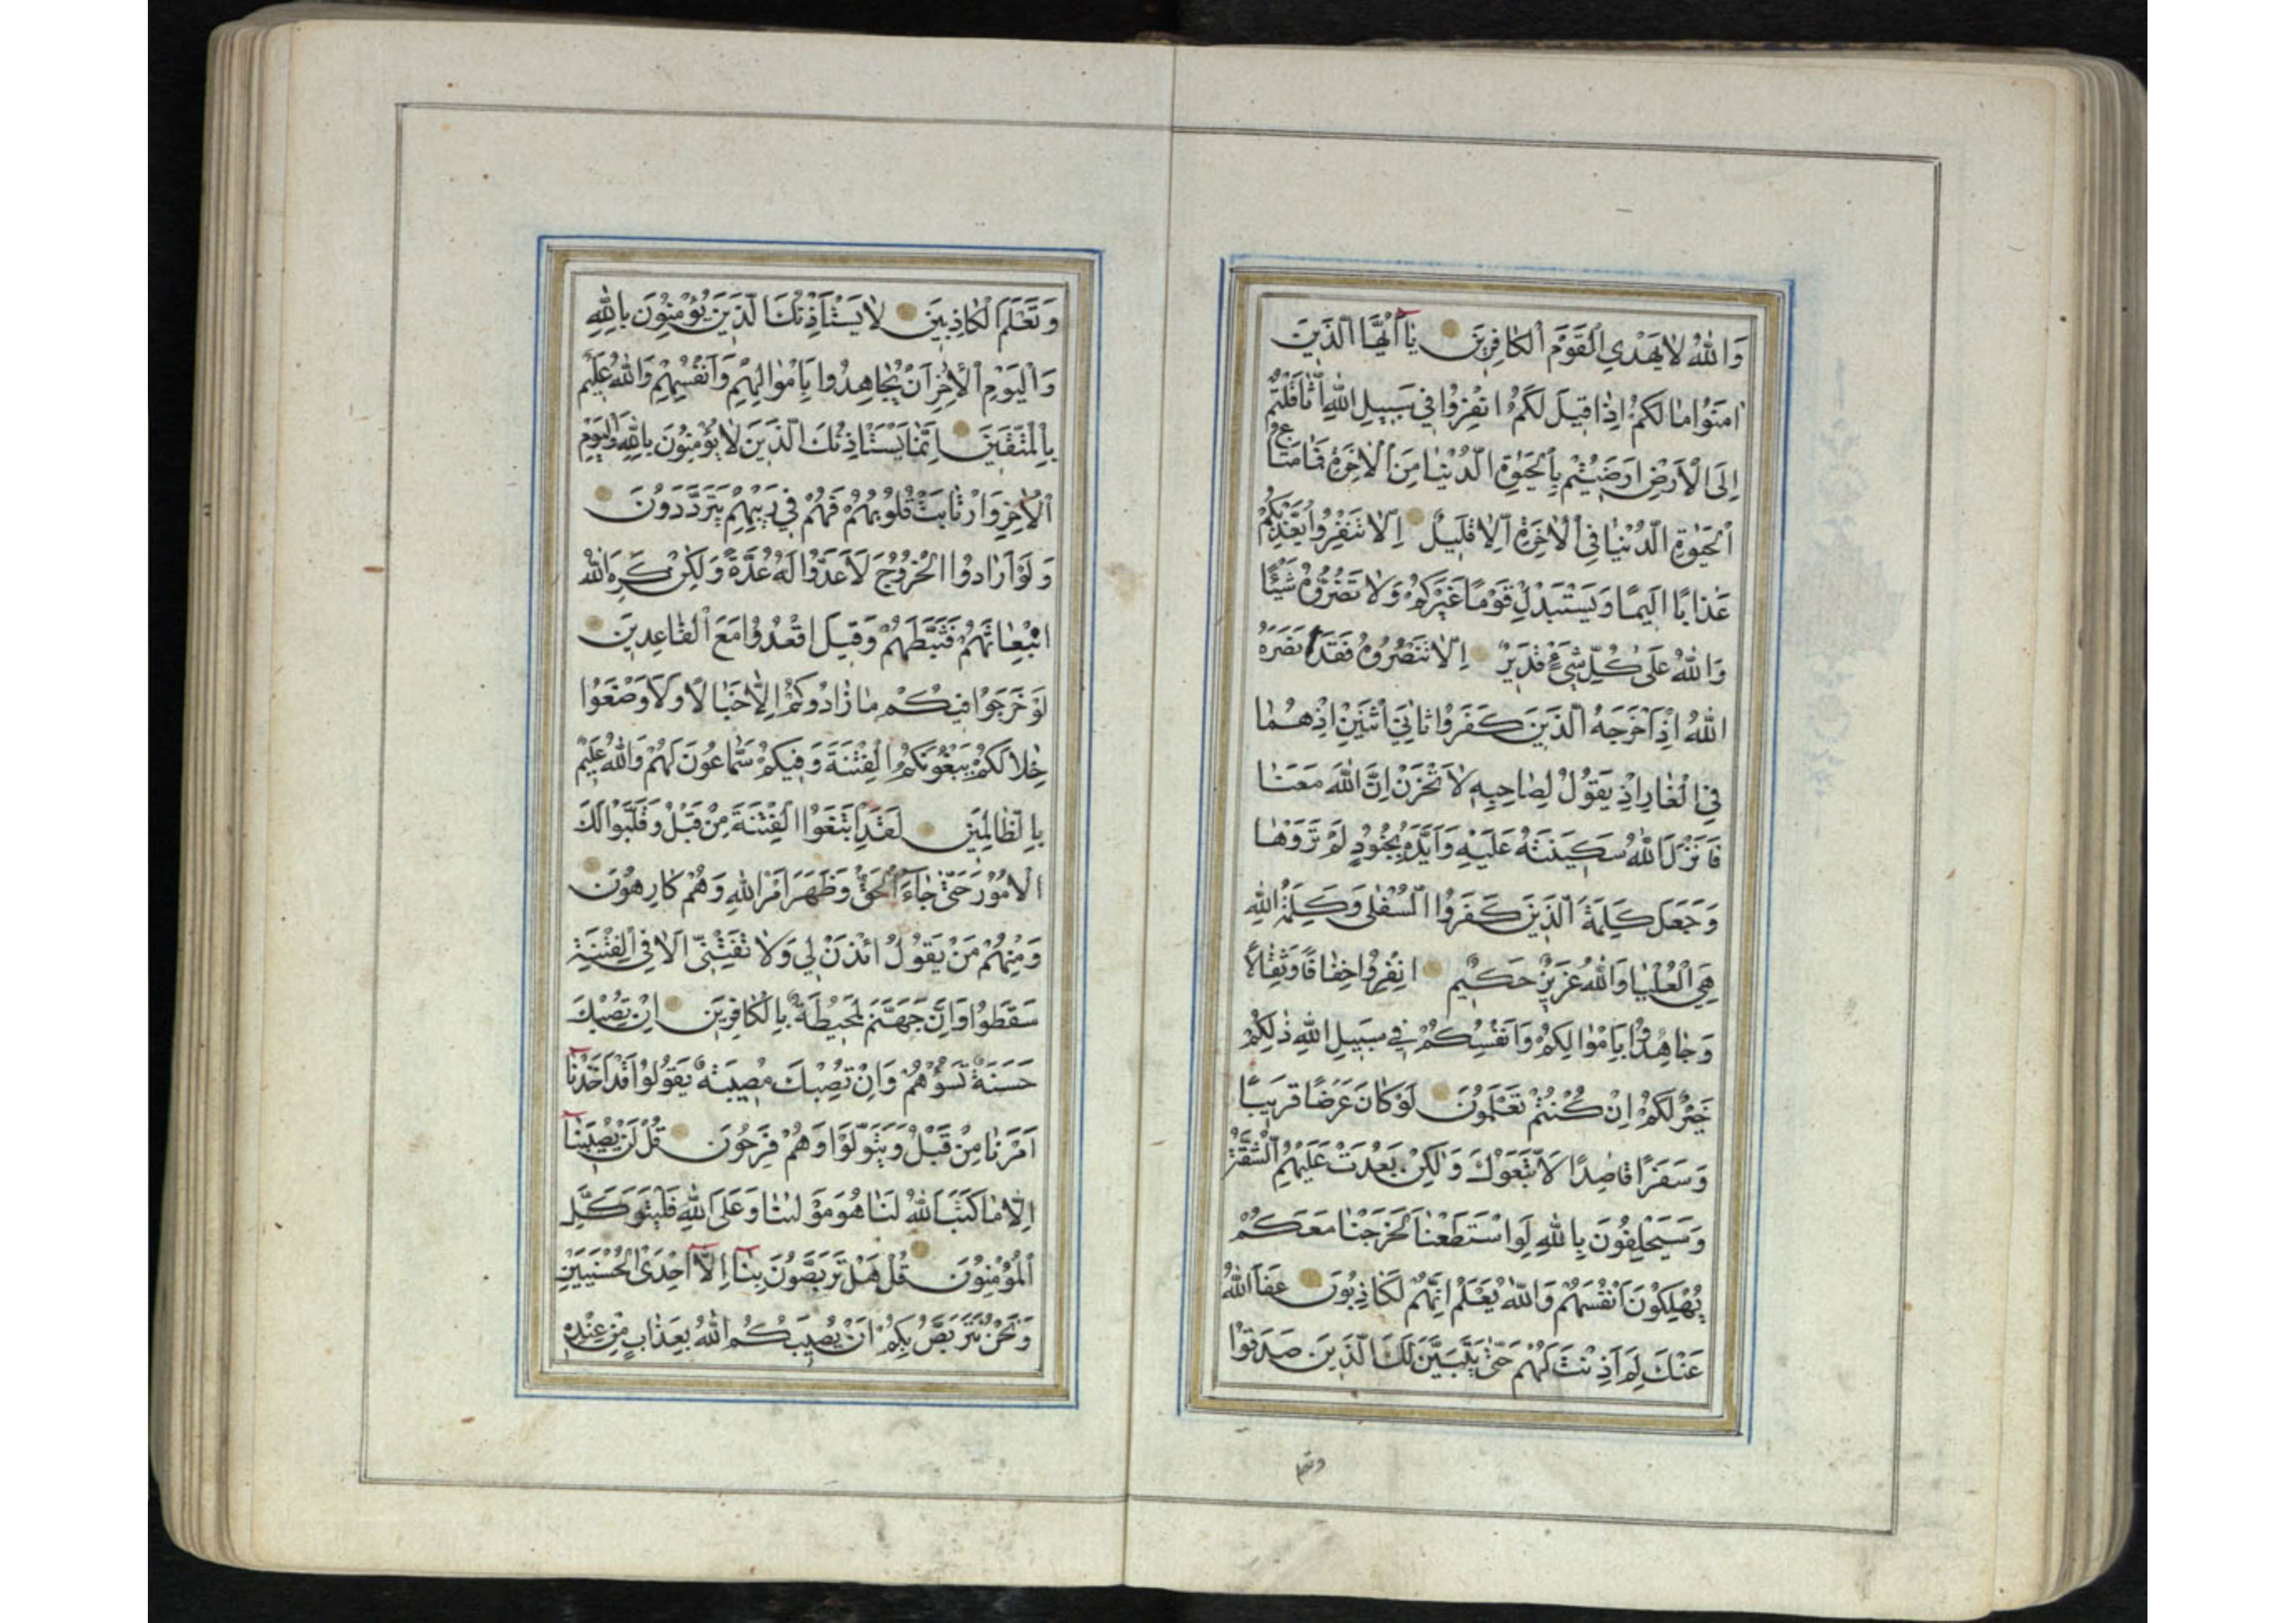 وَاللّٰهُ لَا يَهْدِي الْقَوْمَ الْكَافِرِينَ يَا أَيُّهَا الَّذِينَ
اٰمَنُوا مَا لَكُمْ اِذَا قِيلَ لَكُمُ انْفِرُوا فِي سَبِيلِ اللّٰهِ اثَّاقَلْتُمْ
اِلَى الْاَرْضِ اَرَضِيتُمْ بِالْحَيٰوةِ الدُّنْيَا مِنَ الْاٰخِرَةِ فَمَا مَتَاعُ
الْحَيٰوةِ الدُّنْيَا فِي الْاٰخِرَةِ اِلَّا قَلِيلٌ اِلَّا تَنْفِرُوا يُعَذِّبْكُمْ
عَذَابًا اَلِيمًا وَيَسْتَبْدِلْ قَوْمًا غَيْرَكُمْ وَلَا تَضُرُّوهُ شَيْئًا
وَاللّٰهُ عَلٰى كُلِّ شَيْءٍ قَدِيرٌ اِلَّا تَنْصُرُوهُ فَقَدْ نَصَرَهُ
اللّٰهُ اِذْ اَخْرَجَهُ الَّذِينَ كَفَرُوا ثَانِيَ اثْنَيْنِ اِذْ هُمَا
فِي الْغَارِ اِذْ يَقُولُ لِصَاحِبِهِ لَا تَحْزَنْ اِنَّ اللّٰهَ مَعَنَا
فَاَنْزَلَ اللّٰهُ سَكِينَتَهُ عَلَيْهِ وَاَيَّدَهُ بِجُنُودٍ لَمْ تَرَوْهَا
وَجَعَلَ كَلِمَةَ الَّذِينَ كَفَرُوا السُّفْلٰى وَكَلِمَةُ اللّٰهِ
هِيَ الْعُلْيَا وَاللّٰهُ عَزِيزٌ حَكِيمٌ انْفِرُوا خِفَافًا وَثِقَالًا
وَجَاهِدُوا بِاَمْوَالِكُمْ وَاَنْفُسِكُمْ فِي سَبِيلِ اللّٰهِ ذٰلِكُمْ
خَيْرٌ لَكُمْ اِنْ كُنْتُمْ تَعْلَمُونَ لَوْ كَانَ عَرَضًا قَرِيبًا
وَسَفَرًا قَاصِدًا لَاتَّبَعُوكَ وَلٰكِنْ بَعُدَتْ عَلَيْهِمُ الشُّقَّةُ
وَسَيَحْلِفُونَ بِاللّٰهِ لَوِ اسْتَطَعْنَا لَخَرَجْنَا مَعَكُمْ
يُهْلِكُونَ اَنْفُسَهُمْ وَاللّٰهُ يَعْلَمُ اِنَّهُمْ لَكَاذِبُونَ عَفَا اللّٰهُ
عَنْكَ لِمَ اَذِنْتَ لَهُمْ حَتّٰى يَتَبَيَّنَ لَكَ الَّذِينَ صَدَقُوا
وتعلم
وَتَعْلَمَ الْكَاذِبِينَ لَا يَسْتَاْذِنُكَ الَّذِينَ يُؤْمِنُونَ بِاللّٰهِ
وَالْيَوْمِ الْاٰخِرِ اَنْ يُجَاهِدُوا بِاَمْوَالِهِمْ وَاَنْفُسِهِمْ وَاللّٰهُ عَلِيمٌ
بِالْمُتَّقِينَ اِنَّمَا يَسْتَاْذِنُكَ الَّذِينَ لَا يُؤْمِنُونَ بِاللّٰهِ وَالْيَوْمِ
الْاٰخِرِ وَارْتَابَتْ قُلُوبُهُمْ فَهُمْ فِي رَيْبِهِمْ يَتَرَدَّدُونَ
وَلَوْ اَرَادُوا الْخُرُوجَ لَاَعَدُّوا لَهُ عُدَّةً وَلٰكِنْ كَرِهَ اللّٰهُ
انْبِعَاثَهُمْ فَثَبَّطَهُمْ وَقِيلَ اقْعُدُوا مَعَ الْقَاعِدِينَ
لَوْ خَرَجُوا فِيكُمْ مَا زَادُوكُمْ اِلَّا خَبَالًا وَلَاَوْضَعُوا
خِلَالَكُمْ يَبْغُونَكُمُ الْفِتْنَةَ وَفِيكُمْ سَمَّاعُونَ لَهُمْ وَاللّٰهُ عَلِيمٌ
بِالظَّالِمِينَ لَقَدِ ابْتَغَوُا الْفِتْنَةَ مِنْ قَبْلُ وَقَلَّبُوا لَكَ
الْاُمُورَ حَتّٰى جَاءَ الْحَقُّ وَظَهَرَ اَمْرُ اللّٰهِ وَهُمْ كَارِهُونَ
وَمِنْهُمْ مَنْ يَقُولُ ائْذَنْ لِي وَلَا تَفْتِنِّي اَلَا فِي الْفِتْنَةِ
سَقَطُوا وَاِنَّ جَهَنَّمَ لَمُحِيطَةٌ بِالْكَافِرِينَ اِنْ تُصِبْكَ
حَسَنَةٌ تَسُؤْهُمْ وَاِنْ تُصِبْكَ مُصِيبَةٌ يَقُولُوا قَدْ اَخَذْنَا
اَمْرَنَا مِنْ قَبْلُ وَيَتَوَلَّوْا وَهُمْ فَرِحُونَ قُلْ لَنْ يُصِيبَنَا
اِلَّا مَا كَتَبَ اللّٰهُ لَنَا هُوَ مَوْلٰينَا وَعَلَى اللّٰهِ فَلْيَتَوَكَّلِ
الْمُؤْمِنُونَ قُلْ هَلْ تَرَبَّصُونَ بِنَا اِلَّا اِحْدَى الْحُسْنَيَيْنِ
وَنَحْنُ نَتَرَبَّصُ بِكُمْ اَنْ يُصِيبَكُمُ اللّٰهُ بِعَذَابٍ مِنْ عِنْدِهِ